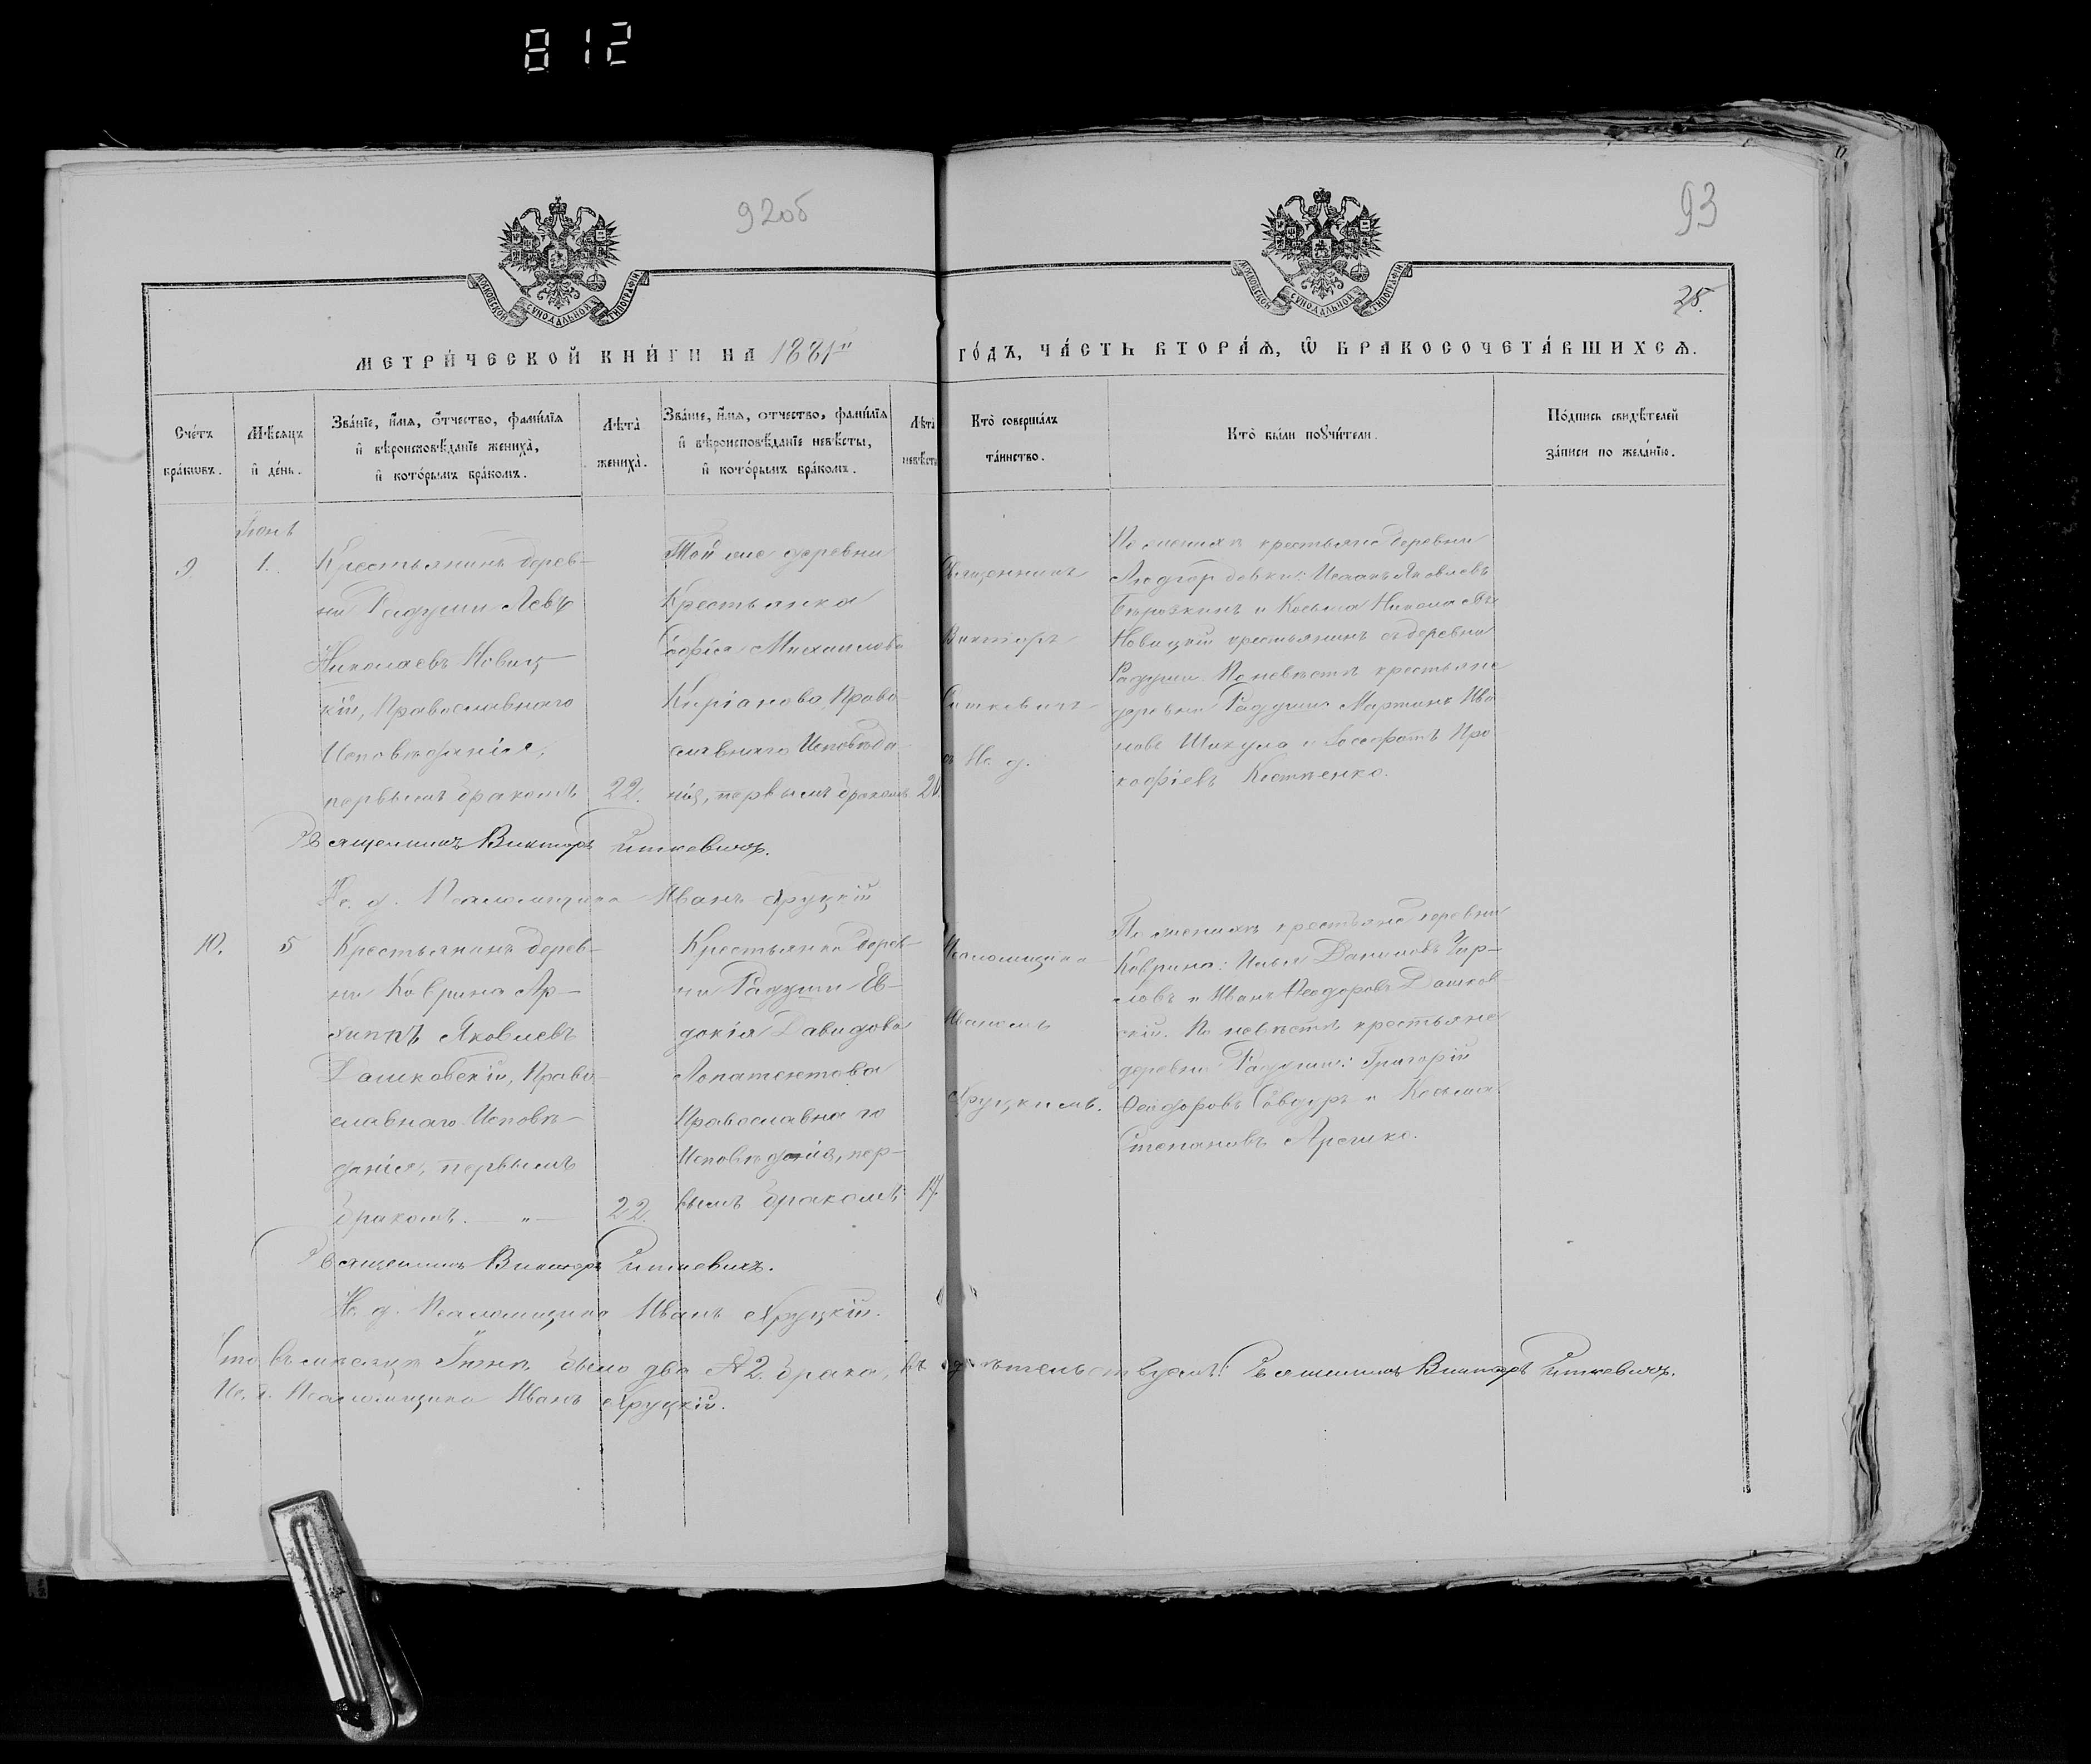 812
92об
93
25.
МОСКОВСКОЙ СѴНОДАЛЬНОЙ ТИПОГРАФІИ
МОСКОВСКОЙ СѴНОДАЛЬНОЙ ТИПОГРАФІИ
МЕТРИ́ЧЕСКОЙ КНИ́ГИ НА 1881й
ГО́ДЪ, ЧА́СТЬ ВТОРА́Ѧ, Ѽ БРАКОСОЧЕТА́ВШИХСѦ.
Сче́тъ
бра́кѡвъ.
Мѣ́сѧцъ
и҆ де́нь.
Зва́нїе, и҆́мѧ, ѻ҆́тчество, фами́лїѧ
и҆ вѣроисповѣ́данїе жениха̀,
и҆ кото́рымъ бра́комъ.
Лѣта̀
жениха̀.
Зва́нїе, и҆́мѧ, отчество, фами́лїѧ
и҆ вѣроисповѣ́данїе невѣ́сты,
и҆ кото́рымъ бра́комъ.
Лѣта̀
невѣ́сты
Кто̀ соверша́лъ
та́инство.
Кто̀ бы́ли порꙋчи́тели.
По́дпись свидѣ́телей
за́писи по жела́нїю.
Іюнь
9
1.
Крестьянинъ дерев-
ни Радуши Левъ
Николаевъ Новиц-
кій, Православнаго
Исповѣданія,
первымъ бракомъ
22.
Той же деревни
Крестьянка
Софія Михаилова
Киріанова, Право
славнаго Исповѣда
нія, первымъ бракомъ
Священникъ
Викторъ
Ситкевичъ
По женихѣ крестьяне деревни
Яковлевъ
и Косьма Николаевъ
Новицкій крестьянинъ деревни
Радуши. По невѣстѣ крестьяне
деревни Радуши: Мартинъ Ива
новъ Шикула и Іосафатъ Про
кофіевъ
Священникъ Викторъ Ситкевичъ.
И. д. Псаломщика Иванъ Хруцкій
10.
5
Крестьянинъ дерев-
ни Коврина Ар-
хиппъ Яковлевъ
Дашковскій, Право
славнаго Исповѣ-
данія, первымъ
бракомъ. — „ —
22.
Крестьянка дерев-
ни Радуши Ев-
докія Давидова
Православнаго
Исповѣданія, пер-
вымъ бракомъ
Псаломщика
Иваномъ
Хруцкимъ.
По женихѣ крестьяне деревни
Коврина: Илья Даниловъ
и Иванъ Ѳеодоровъ Дашков
скій. По невѣстѣ крестьяне
деревни Радуши: Григорій
Ѳеодоровъ и Косьма
Степановъ
Священникъ Викторъ Ситкевичъ.
И. д. Псаломщика Иванъ Хруцкій.
Что въ мѣсяцѣ Іюнѣ было два № 2. брака, свидѣтельствуемъ: Священникъ Викторъ Ситкевичъ.
И. д. Псаломщика Иванъ Хруцкій.